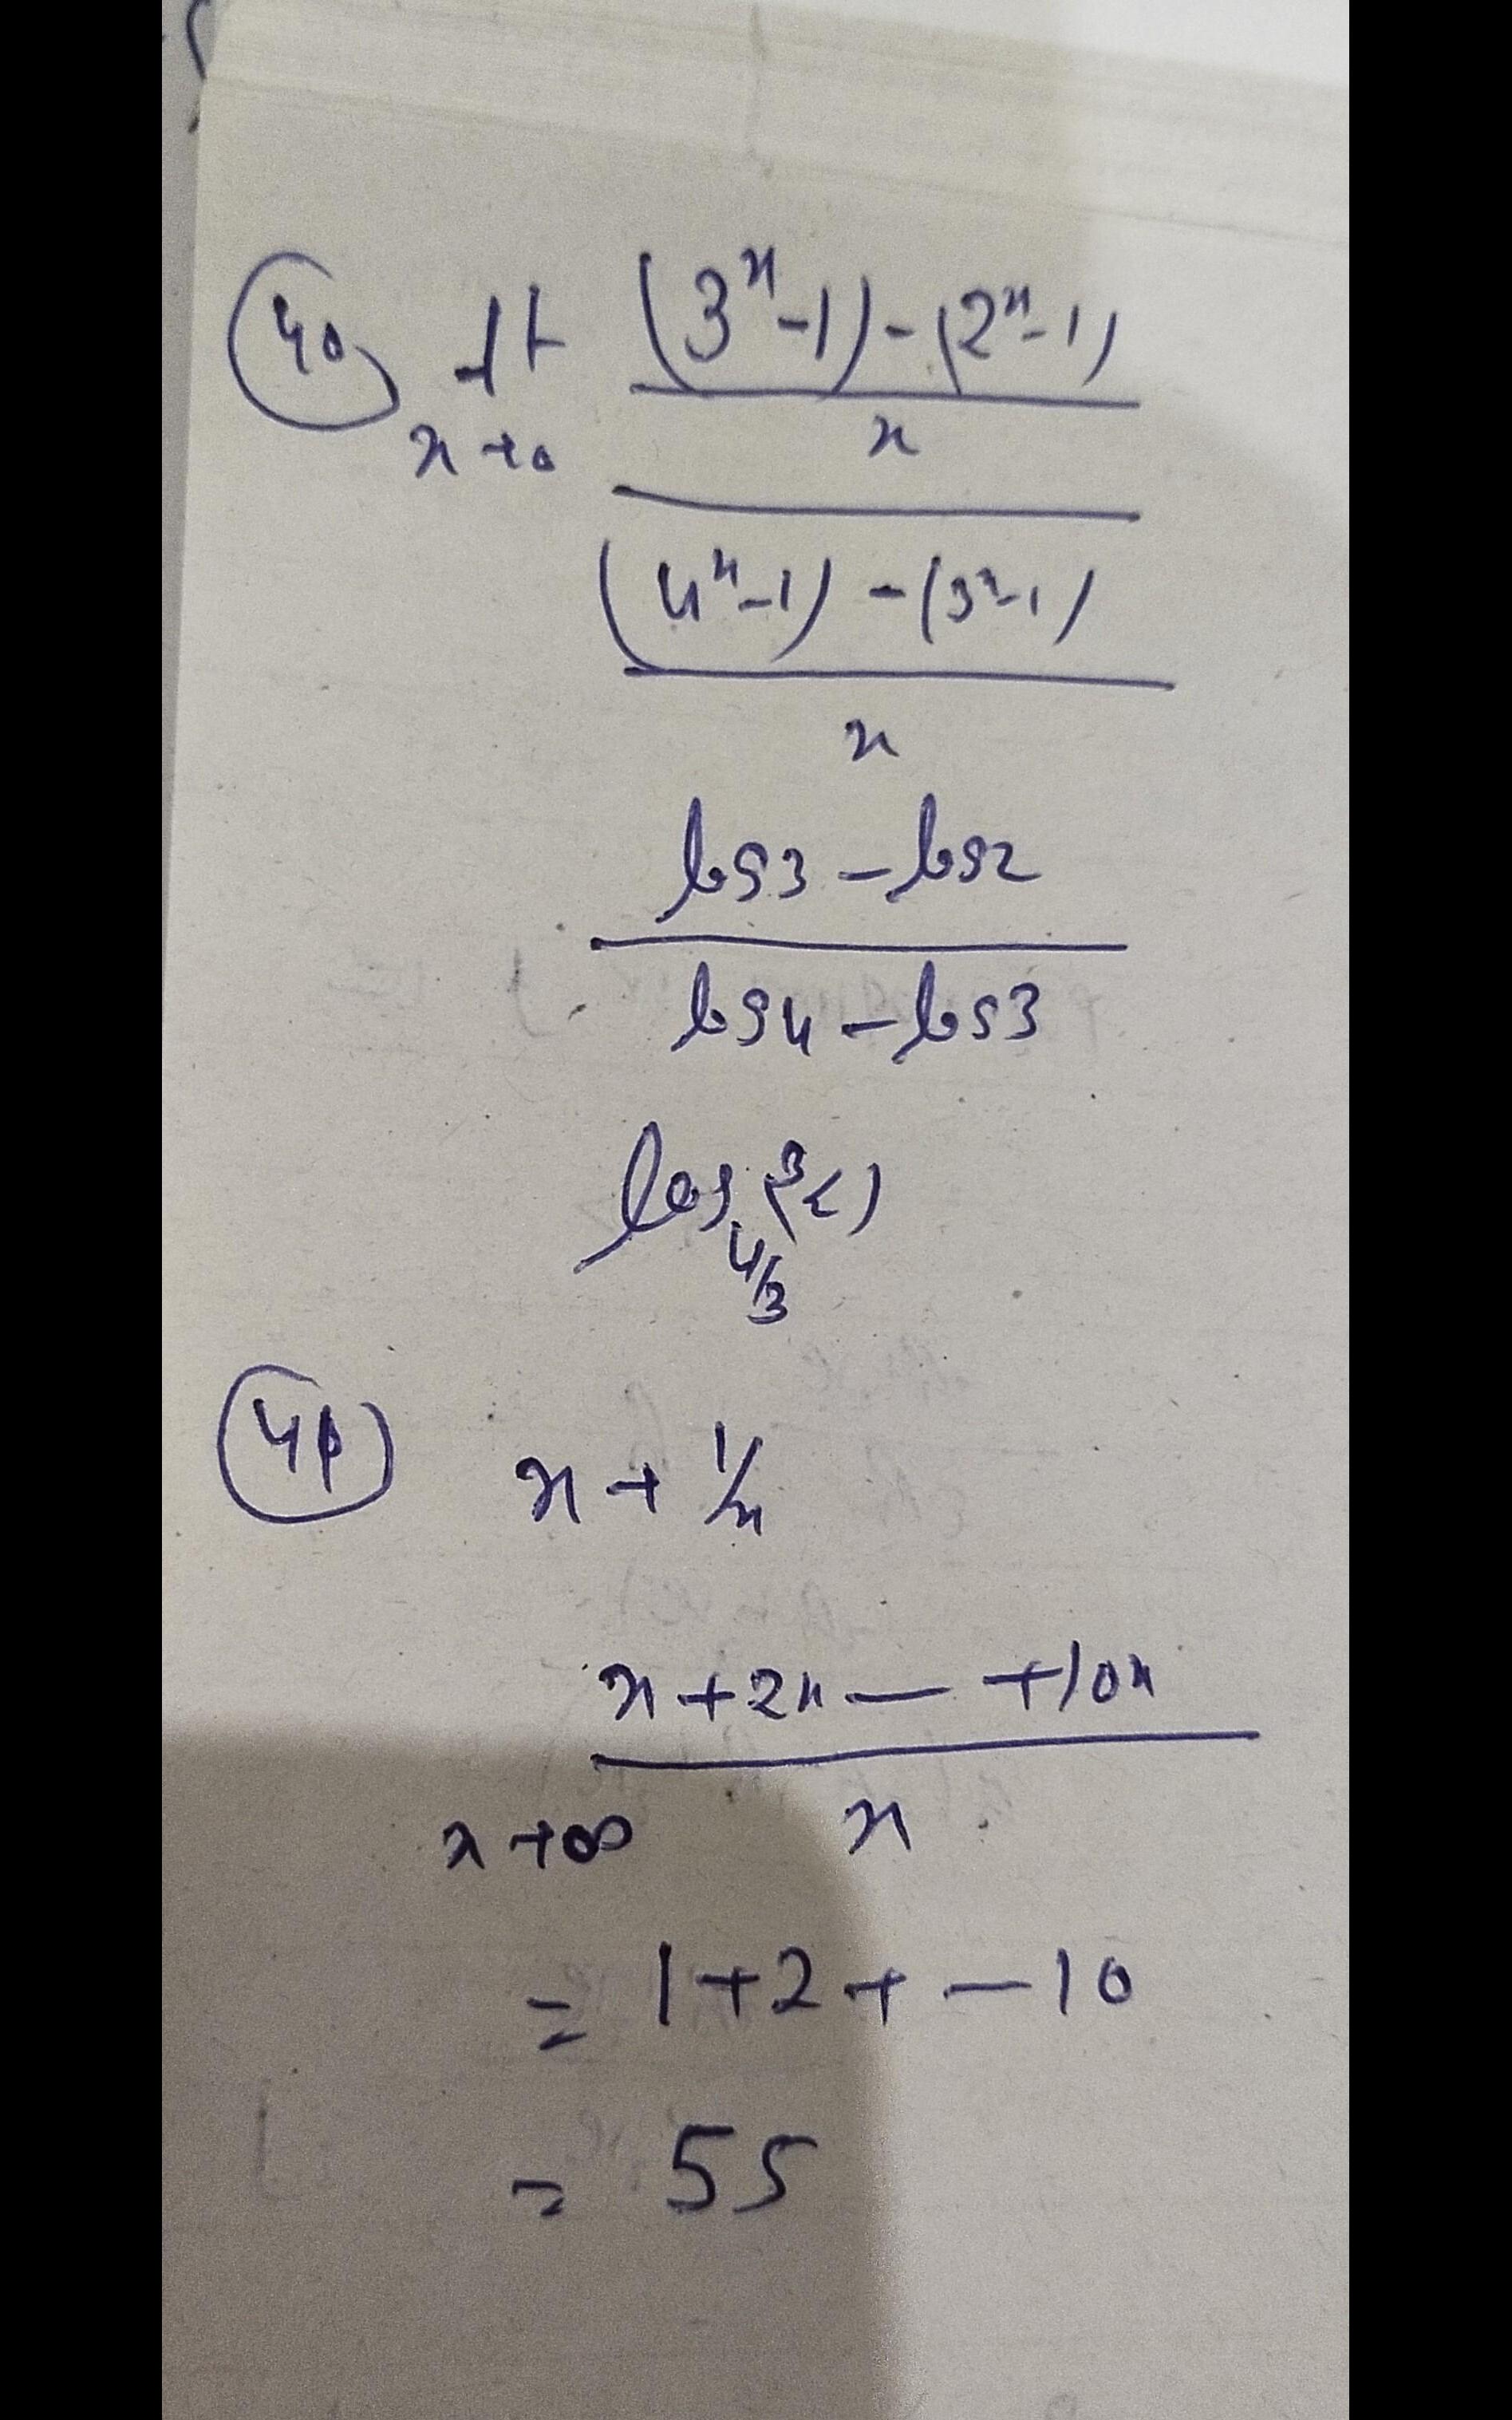 40) lt (3^x-1)-(2^x-1)
x→0 x
(4^x-1)-(3^x-1)
x
log3-log2
log4-log3
log_{4/3}(3/2)
41) x+1/x
x+2x—+10x
x→∞ x
=1+2+—10
=55